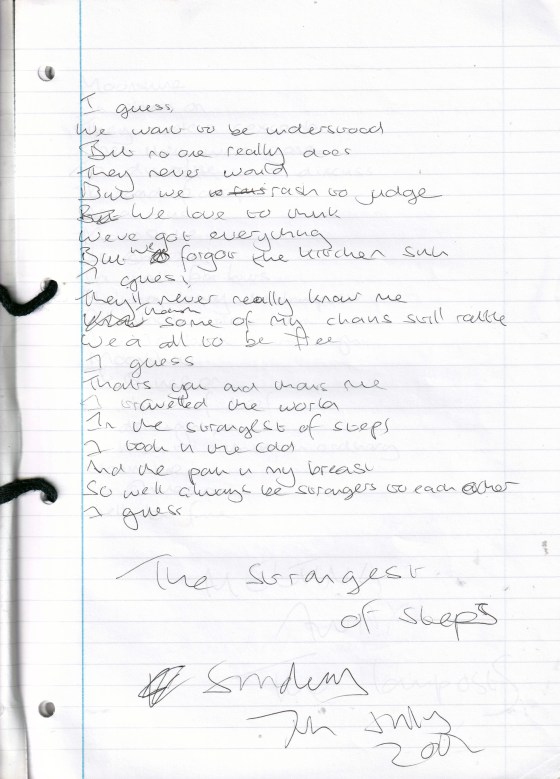 I guess,
We want to be understood
But no one really does
They never would
But we rash to judge
But We love to think
We've got everything
But we forgot the kitchen sink
I guess,
They'll never really know me
some of my chains still rattle
We'd all to be free
I guess
Thats you and thats me
I travelled the world
In the strangest of steps
I took in the cold
And the pain in my breast
So we'll always be strangers to each other
I guess
The Strangest
of steps
Sunday
7th July
2002